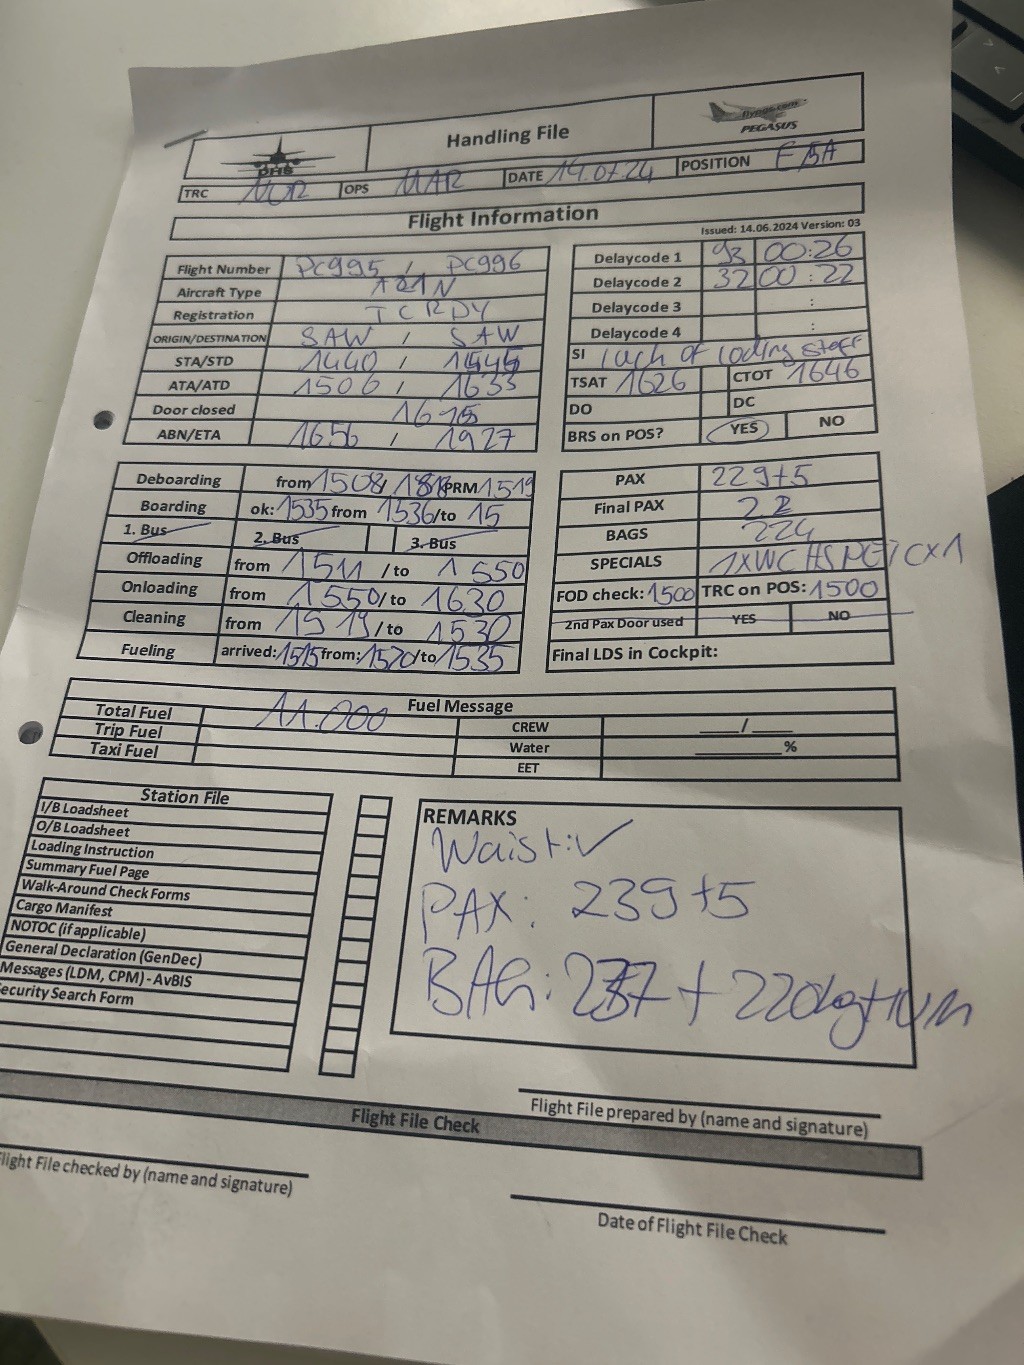 DHS
Handling File
flypgs.com
PEGASUS
TRC NUR OPS MAR DATE 14.07.24 POSITION E15A
Flight Information
Issued: 14.06.2024 Version: 03
Flight Number PC995 / PC996
Aircraft Type A21N
Registration TCRDY
ORIGIN/DESTINATION SAW / SAW
STA/STD 1440 / 1545
ATA/ATD 1506 / 1633
Door closed
ABN/ETA 1656 / 1927
Delaycode 1 93 00:26
Delaycode 2 32 00:22
Delaycode 3 :
Delaycode 4 :
SI Lach of loding staff
TSAT 1626 CTOT 1646
DO DC
BRS on POS? YES NO
Deboarding from 1508 / PRM 1519
Boarding ok: 1535 from 1536/to 15
1. Bus 2. Bus 3. Bus
Offloading from 1511 /to 1550
Onloading from 1550/to 1630
Cleaning from 1519/to 1530
Fueling arrived: 1515 from: 1520/to 1535
PAX 229+5
Final PAX
BAGS 224
SPECIALS 1XWCHS PETCX1
FOD check: 1500 TRC on POS: 1500
2nd Pax Door used YES NO
Final LDS in Cockpit:
Fuel Message
Total Fuel 11.000 CREW ____/____
Trip Fuel Water ________%
Taxi Fuel EET
Station File
I/B Loadsheet
O/B Loadsheet
Loading Instruction
Summary Fuel Page
Walk-Around Check Forms
Cargo Manifest
NOTOC (if applicable)
General Declaration (GenDec)
Messages (LDM, CPM) - AvBIS
ecurity Search Form
REMARKS
Waist: ✓
PAX: 239+5
BAG: 237 + 220kg
Flight File prepared by (name and signature)
Flight File Check
light File checked by (name and signature)
Date of Flight File Check